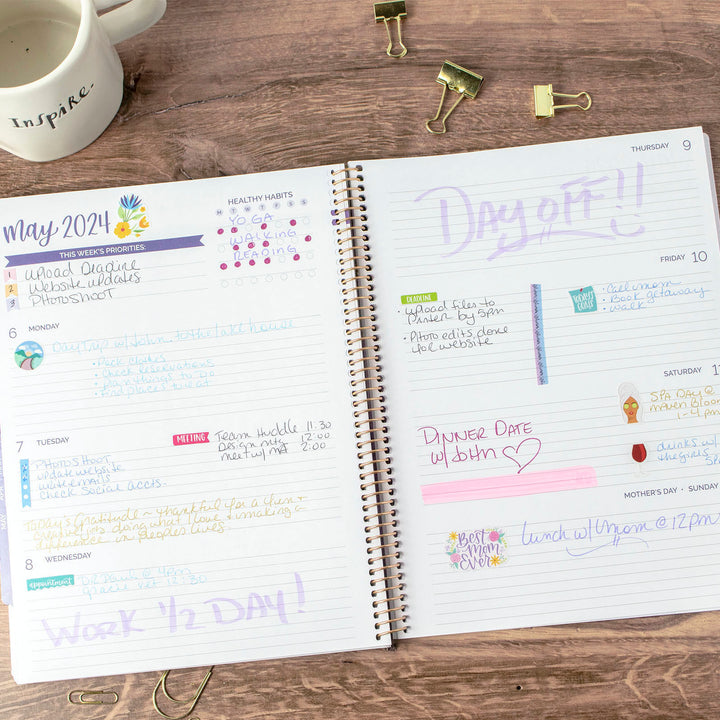 Inspire.
May 2024
THIS WEEK'S PRIORITIES:
1 Upload Deadline
2 Website updates
3 Photoshoot
HEALTHY HABITS
M T W T F S S
YOGA
WALKING
READING
6 MONDAY
Day trip w/ John to the lake house
• Pack clothes
• Check reservations
• Plan things to do
• Find places to eat
7 TUESDAY
PHOTOSHOOT
update website
write emails
check social accts.
MEETING
Team Huddle 11:30
Design mtg 12:00
meet w/ Mat 2:00
Today's Gratitude ~ thankful for a fun &
doing what I love & making a
difference in people's lives.
8 WEDNESDAY
appointment
Dr. Paul @ 4pm
Gracie vet 12:30
WORK 1/2 DAY!
THURSDAY 9
DAY OFF!!
FRIDAY 10
DEADLINE
• Upload files to
printer by 5pm
• Photo edits done
for website
TODAY'S GOALS
• Call mom
• Book getaway
• walk
SATURDAY 11
SPA DAY @
Maven Bloom
1-4pm
DINNER DATE
w/ John
drinks w/
the girls
5pm
MOTHER'S DAY • SUNDAY
Best
Mom
EVER
Lunch w/ mom @ 12pm